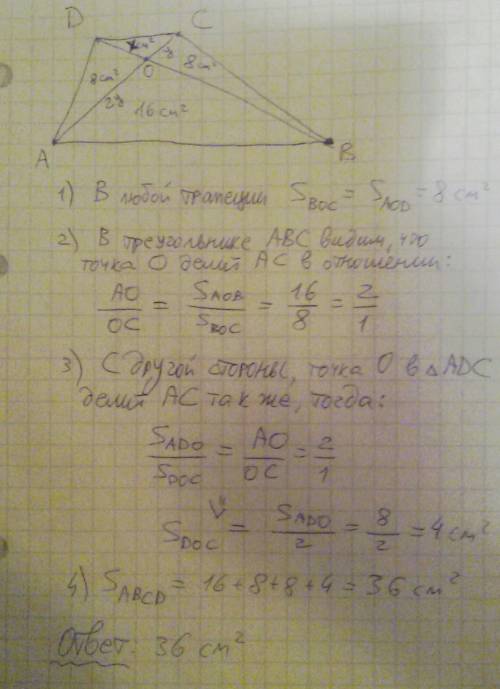 D C
x см²
8 см² O y 8 см²
2y 16 см²
A B
1) В любой трапеции S_BOC = S_AOD = 8 см²
2) В треугольнике ABC видим, что
точка O делит AC в отношении:
AO/OC = S_AOB/S_BOC = 16/8 = 2/1
3) С другой стороны, точка O в △ADC
делит AC так же, тогда:
S_ADO/S_DOC = AO/OC = 2/1
⇓
S_DOC = S_ADO/2 = 8/2 = 4 см²
4) S_ABCD = 16+8+8+4 = 36 см²
Ответ: 36 см²